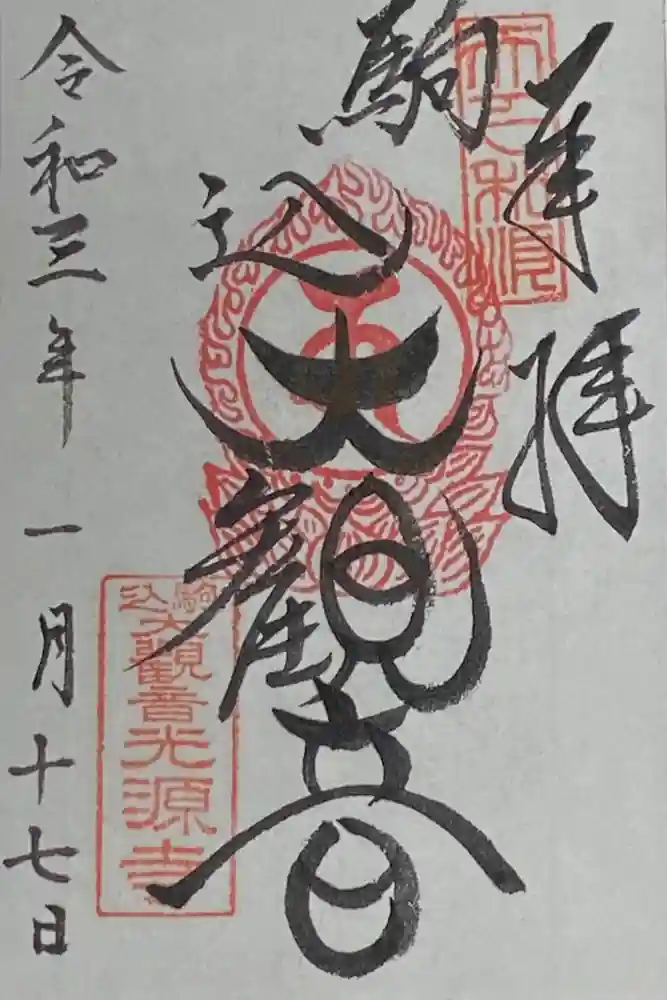 奉拝
駒込
大観音
令和三年一月十七日
駒込
大観音光源寺